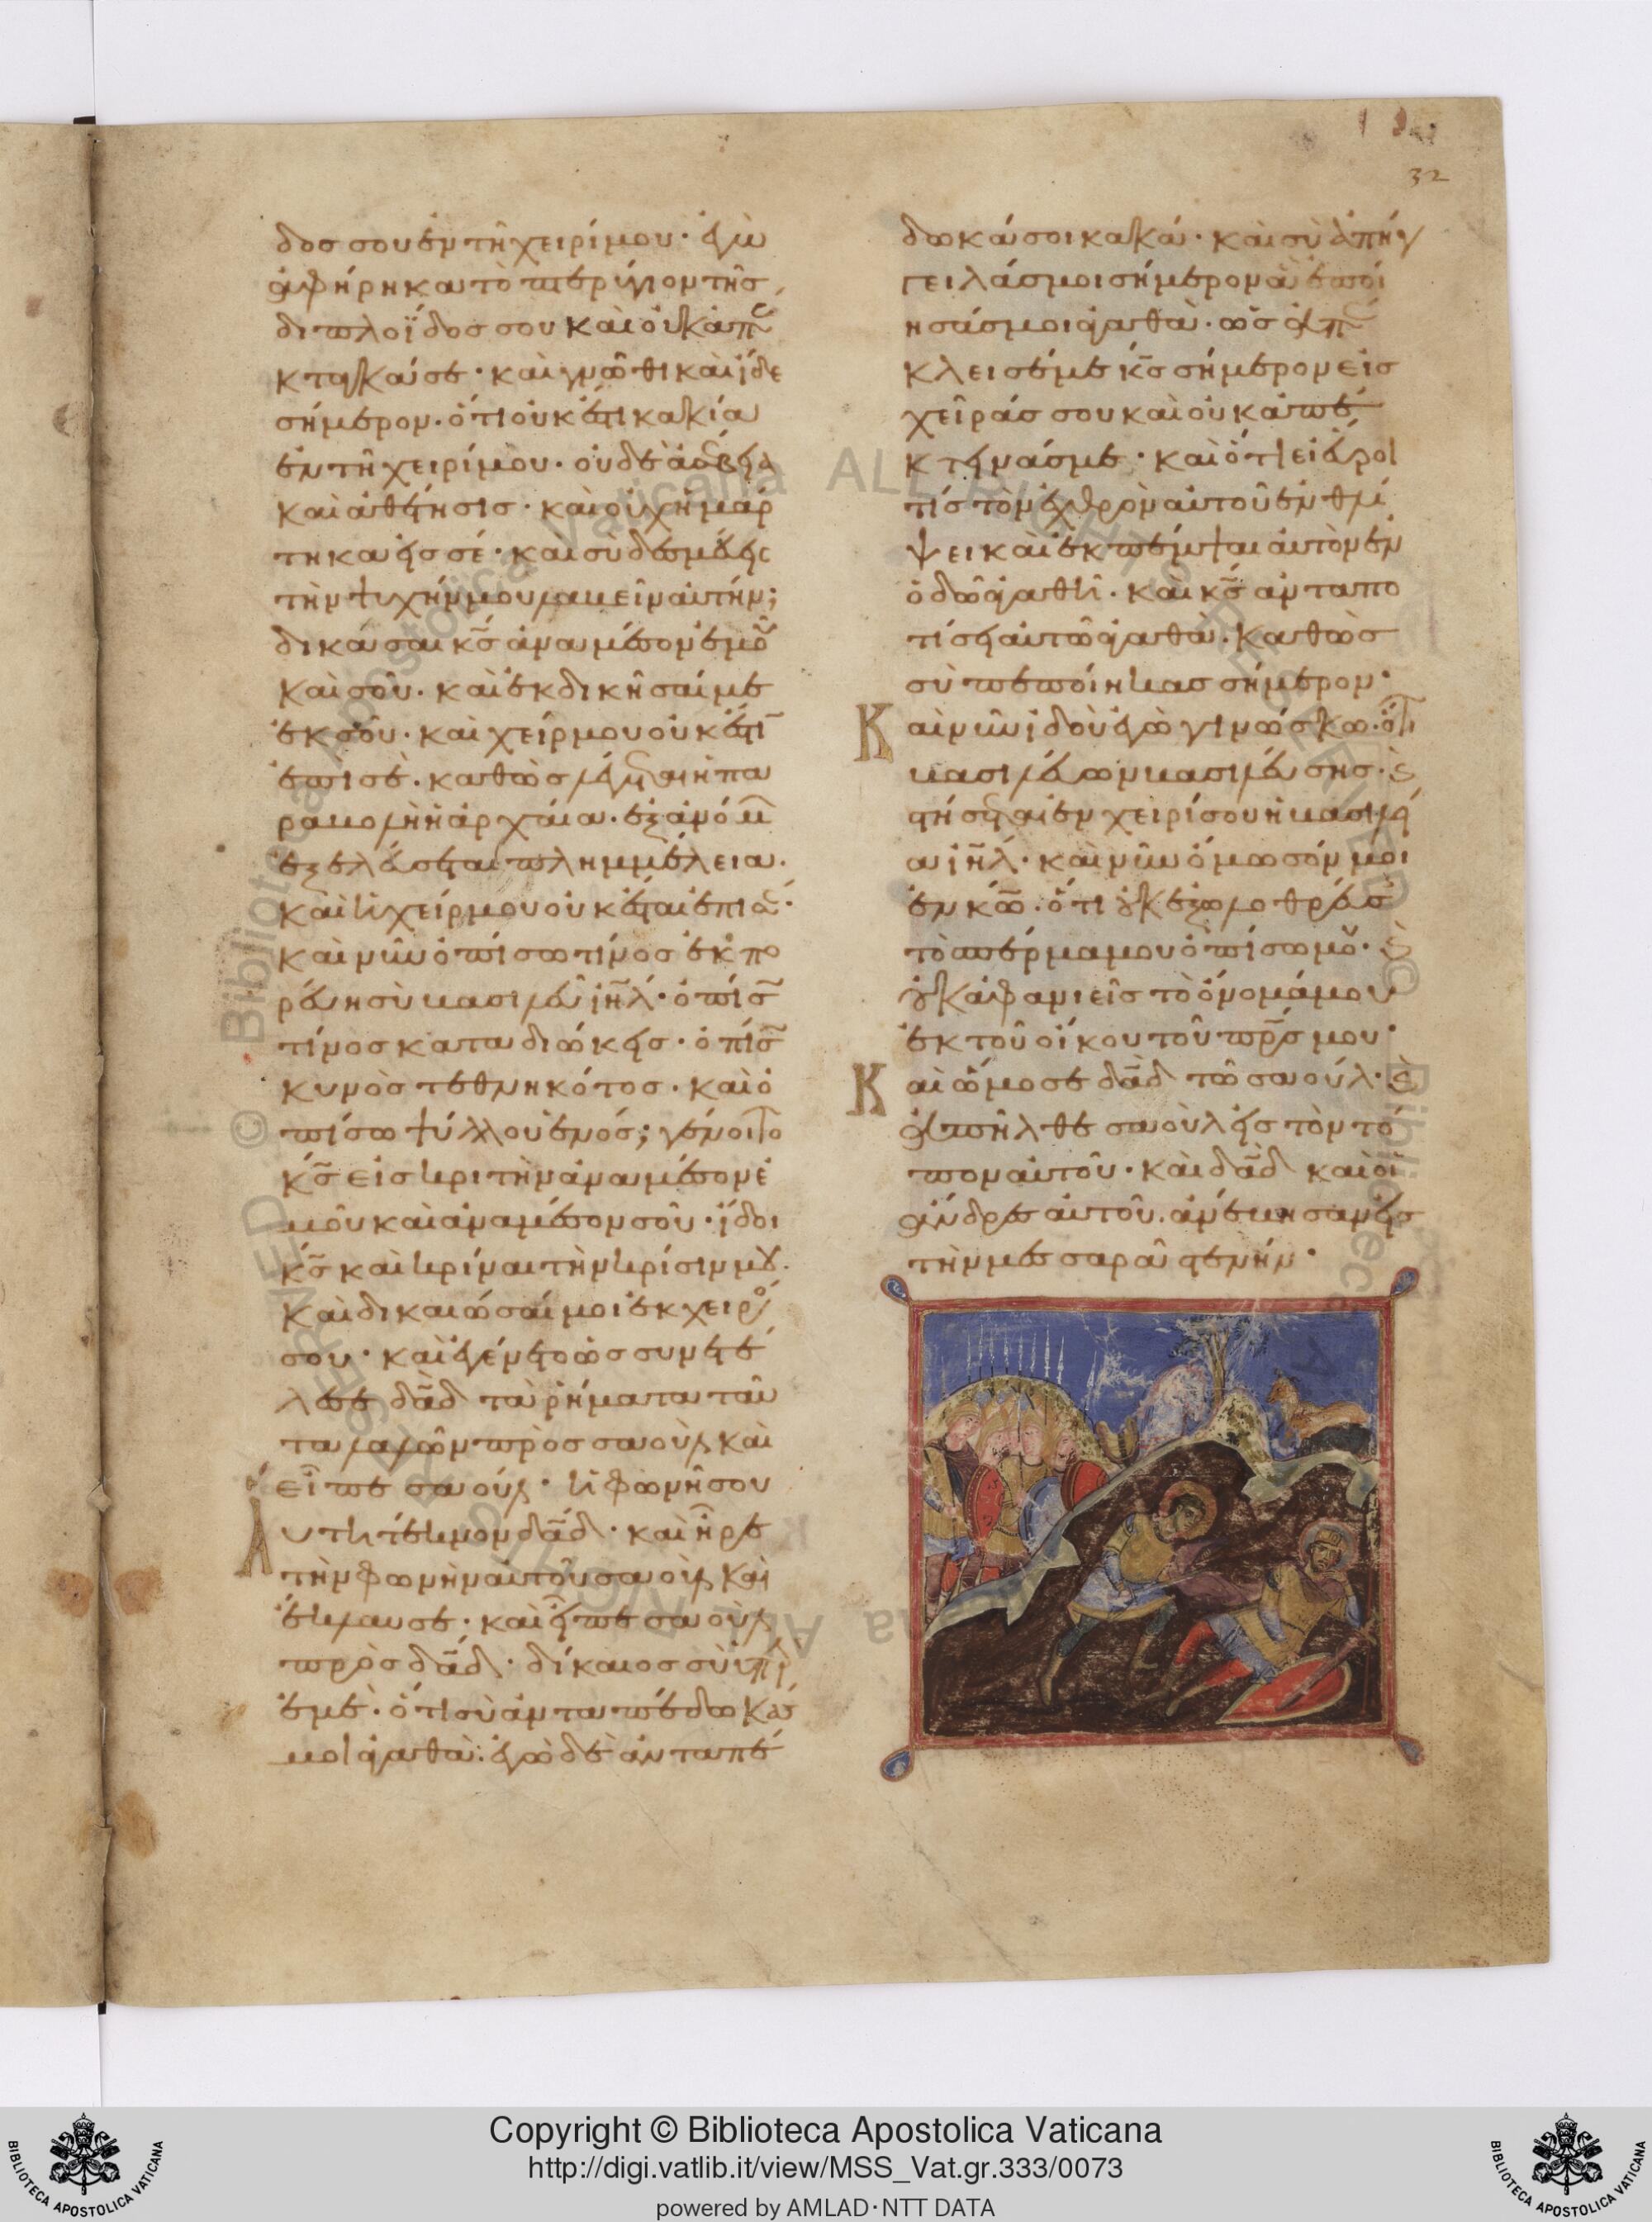 32
δος σου ἐν τῆ χειρί μου· ἐγὼ
ἀφήρηκα τὸ πτερύγιον τῆς
διπλοΐδος σου καὶ οὐκ ἀπέ
κταγκά σε· καὶ γνῶθι καὶ ἴδε
σήμερον· ὅτι οὐκ ἔστι κακία
ἐν τῆ χειρί μου· οὐδὲ ἀσέβεια
καὶ ἀθέτησις· καὶ οὐχ ἡμάρ
τηκα εἰς σέ· καὶ σὺ δεσμεύεις
τὴν ψυχήν μου λαβεῖν αὐτήν;
δικάσαι κς ἀνὰ μέσον ἐμοῦ
καὶ σοῦ· καὶ ἐκδικήσαι με
ἐκ σοῦ· καὶ χείρ μου οὐκ ἔστι
ἐπὶ σέ· καθὼς λέγεται ἡ πα
ραβολὴ ἡ ἀρχαία· ἐξ ἀνόμ
ἐξελεύσεται πλημμέλεια·
καὶ ἡ χείρ μου οὐκ ἔσται ἐπὶ σέ·
καὶ νῦν ὀπίσω τίνος ἐκπο
ρεύη σὺ βασιλεῦ ιηλ· ὀπίσω
τίνος καταδιώκεις· ὀπίσω
κυνὸς τεθνηκότος· καὶ ὀ
πίσω ψύλλου ἑνός; γένοιτο
κς εἰς κριτὴν ἀνὰ μέσον ἐ
μοῦ καὶ ἀνὰ μέσον σοῦ· ἴδοι
κς καὶ κρίναι τὴν κρίσιν μου·
καὶ δικαιώσαι μοι ἐκ χειρός
σου· καὶ ἐγένετο ὡς συνετέ
λεσε δαδ τὰ ῥήματα ταῦ
τα λαλῶν πρὸς σαούλ καὶ
εἶπε σαούλ· ἡ φωνή σου
αὕτη τέκνον δαδ· καὶ ἦρε
τὴν φωνὴν αὐτοῦ σαοὺλ καὶ
ἔκλαυσε· καὶ εἶπε σαοὺλ
πρὸς δαδ· δίκαιος σὺ ὑπὲρ
ἐμέ· ὅτι σὺ ἀνταπέδωκάς
μοι ἀγαθά· ἐγὼ δὲ ἀνταπέ
δωκά σοι κακά· καὶ σὺ ἀπήγ
γειλάς μοι σήμερον ἃ ἐποί
ησάς μοι ἀγαθά· ὡς ἀπέ
κλεισέ με κς σήμερον εἰς
χεῖράς σου καὶ οὐκ ἀπέ
κτεινάς με· καὶ ὅτι εἰ εὕροι
τίς τὸν ἐχθρὸν αὐτοῦ ἐν θλί
ψει καὶ ἐκπέμψαι αὐτὸν ἐν
ὁδῶ ἀγαθῆ· καὶ κς ἀνταπο
τίσει αὐτῶ ἀγαθά· καθὼς
σὺ πεποίηκας σήμερον·
Καὶ νῦν ἰδοὺ ἐγὼ γινώσκω· ὅτι
βασιλεύων βασιλεύσης· καὶ
στήσεται ἐν χειρί σου ἡ βασιλεί
α ιηλ· καὶ νῦν ὄμοσόν μοι
ἐν κω· ὅτι οὐκ ἐξολοθρεύσεις
τὸ σπέρμα μου ὀπίσω μου· καὶ
οὐκ ἀφανιεῖς τὸ ὄνομά μου
ἐκ τοῦ οἴκου τοῦ πρς μου·
Καὶ ὤμοσε δαδ τῶ σαούλ· καὶ
ἀπῆλθε σαοὺλ εἰς τὸν τό
πον αὐτοῦ· καὶ δαδ καὶ οἱ
ἄνδρες αὐτοῦ. ἀνέβησαν εἰς
τὴν μεσσαρὰ στενήν·
© Biblioteca Apostolica Vaticana ALL RIGHTS RESERVED
Copyright © Biblioteca Apostolica Vaticana
http://digi.vatlib.it/view/MSS_Vat.gr.333/0073
powered by AMLAD·NTT DATA
BIBLIOTECA APOSTOLICA VATICANA
BIBLIOTECA APOSTOLICA VATICANA